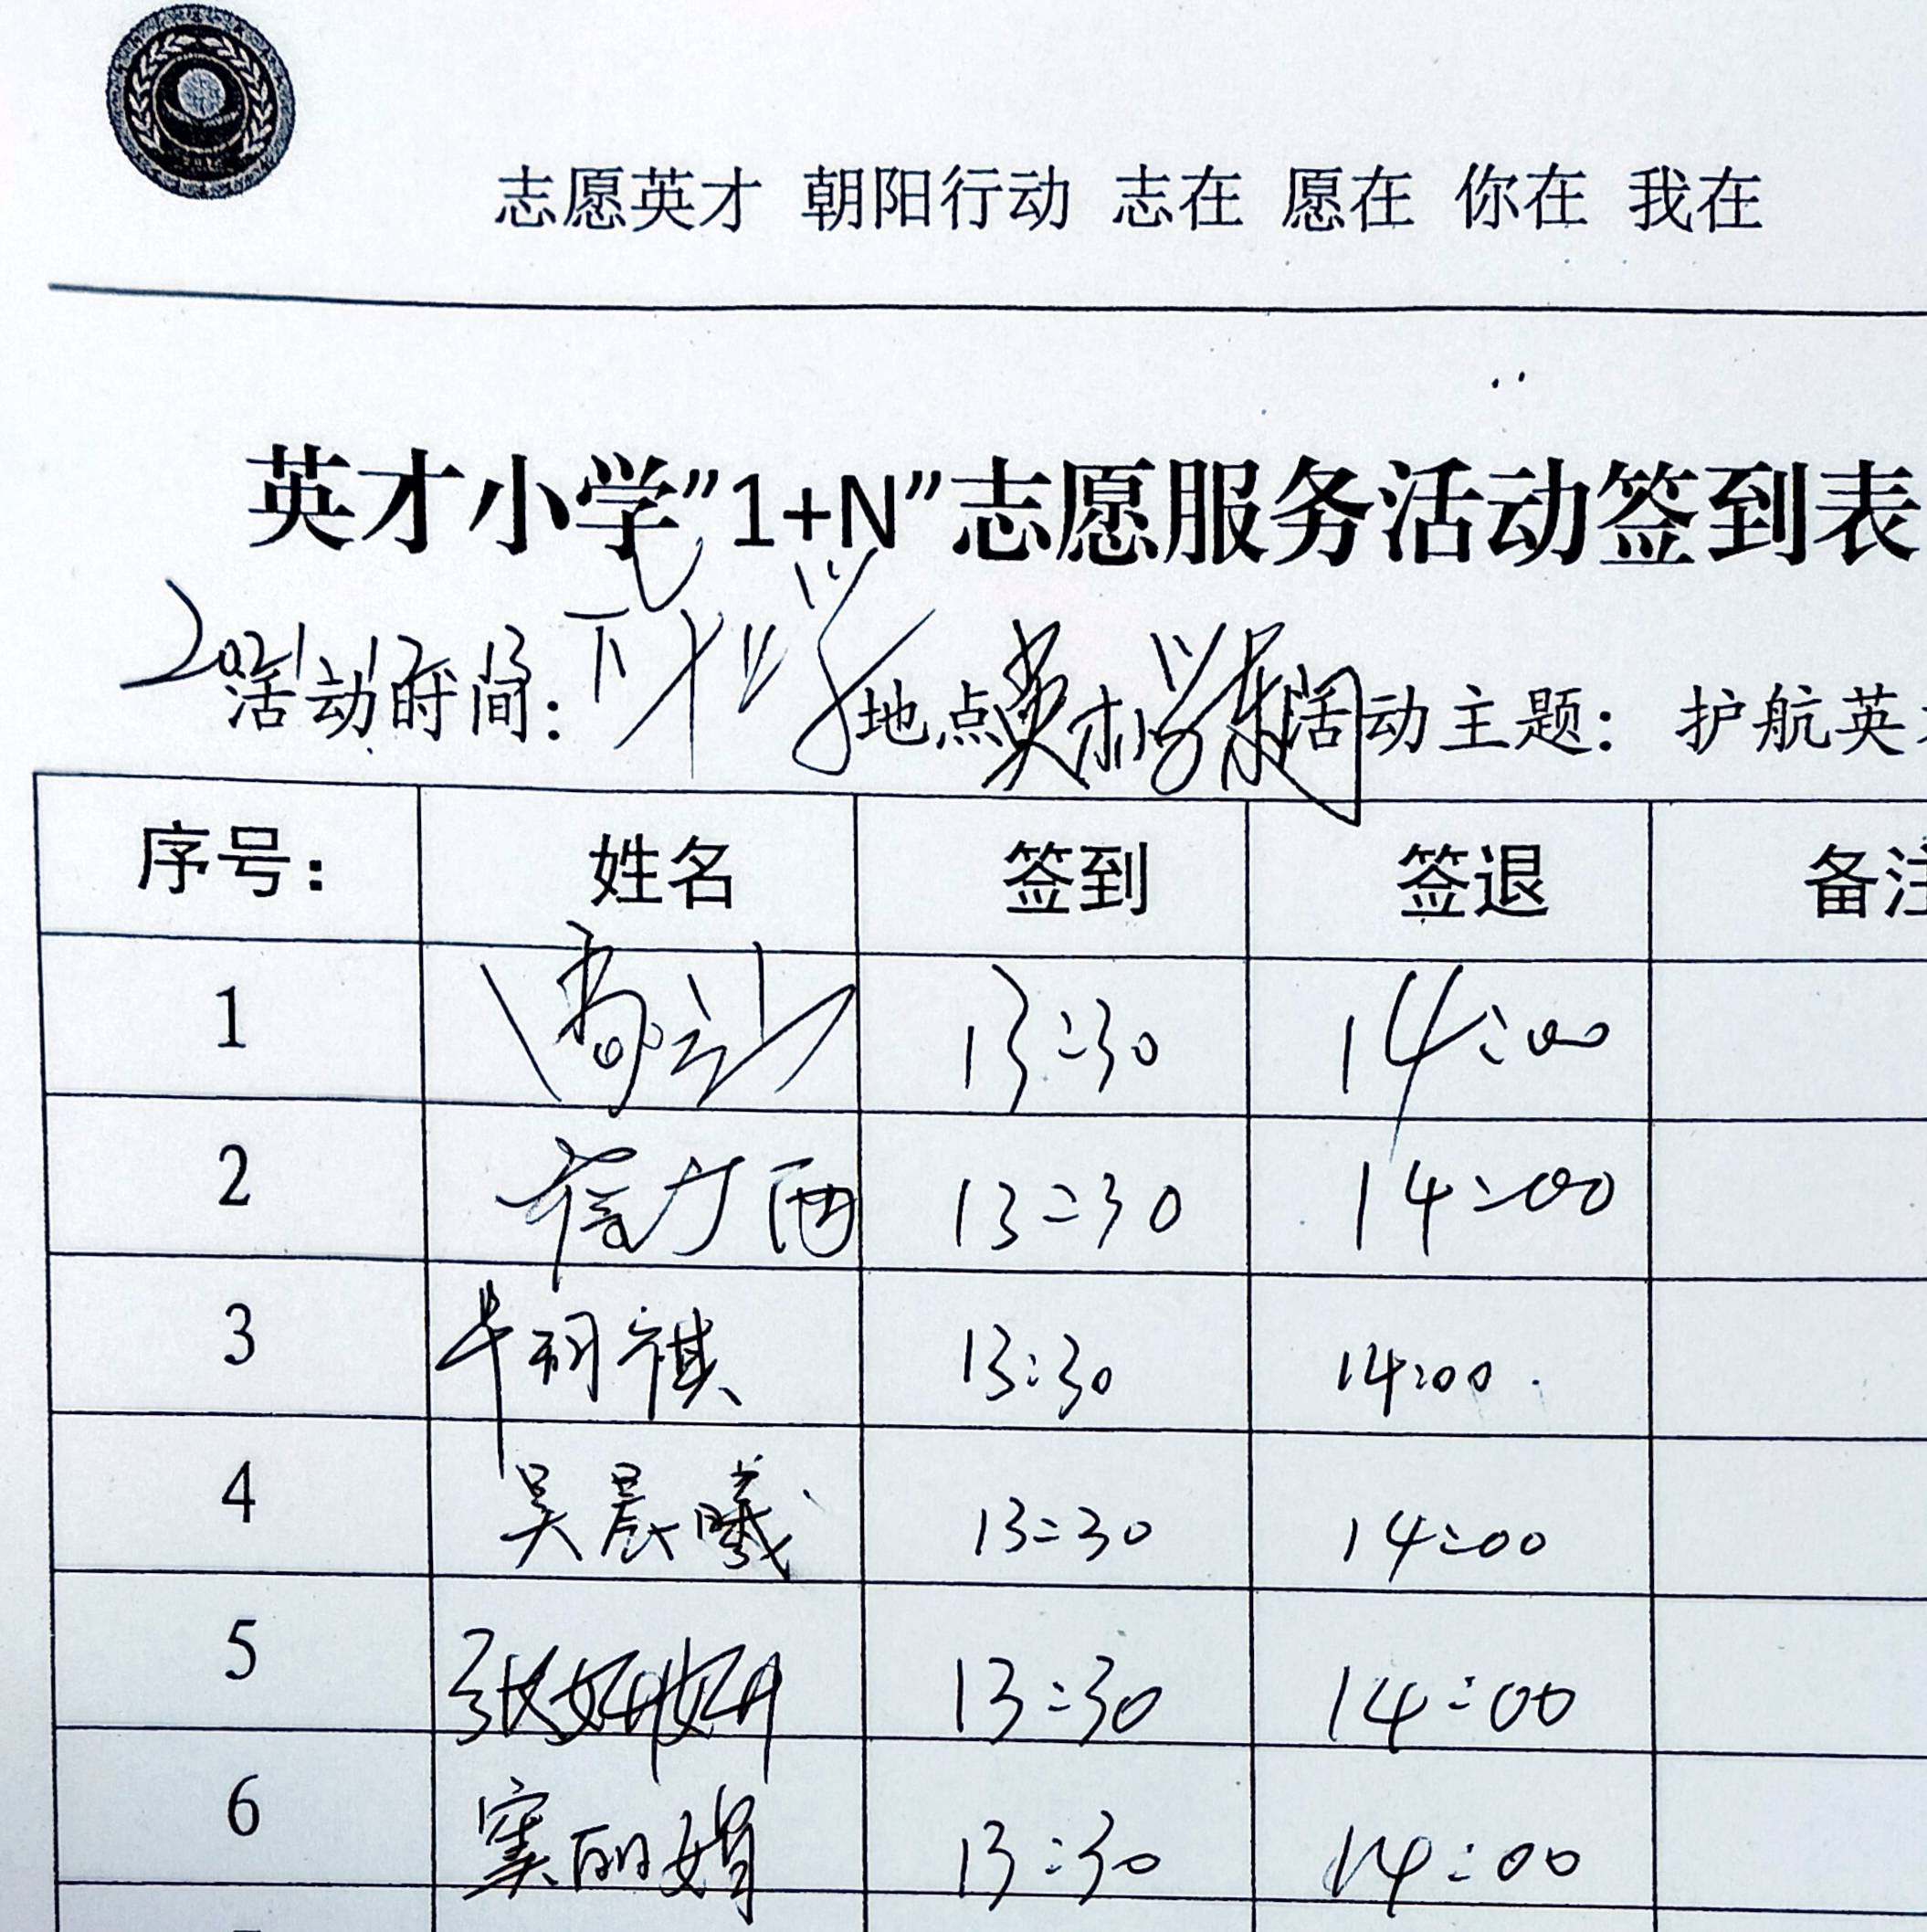 志愿英才 朝阳行动 志在 愿在 你在 我在
英才小学”1+N”志愿服务活动签到表
2021.12.13
活动时间: 下午 学 地点 英才学校 活动主题: 护航英
序号: 姓名 签到 签退 备注
1 13:30 14:00
2 13:30 14:00
3 牛祤祺 13:30 14:00
4 吴晨曦 13:30 14:00
5 张妍妍 13:30 14:00
6 窦丽娟 13:30 14:00